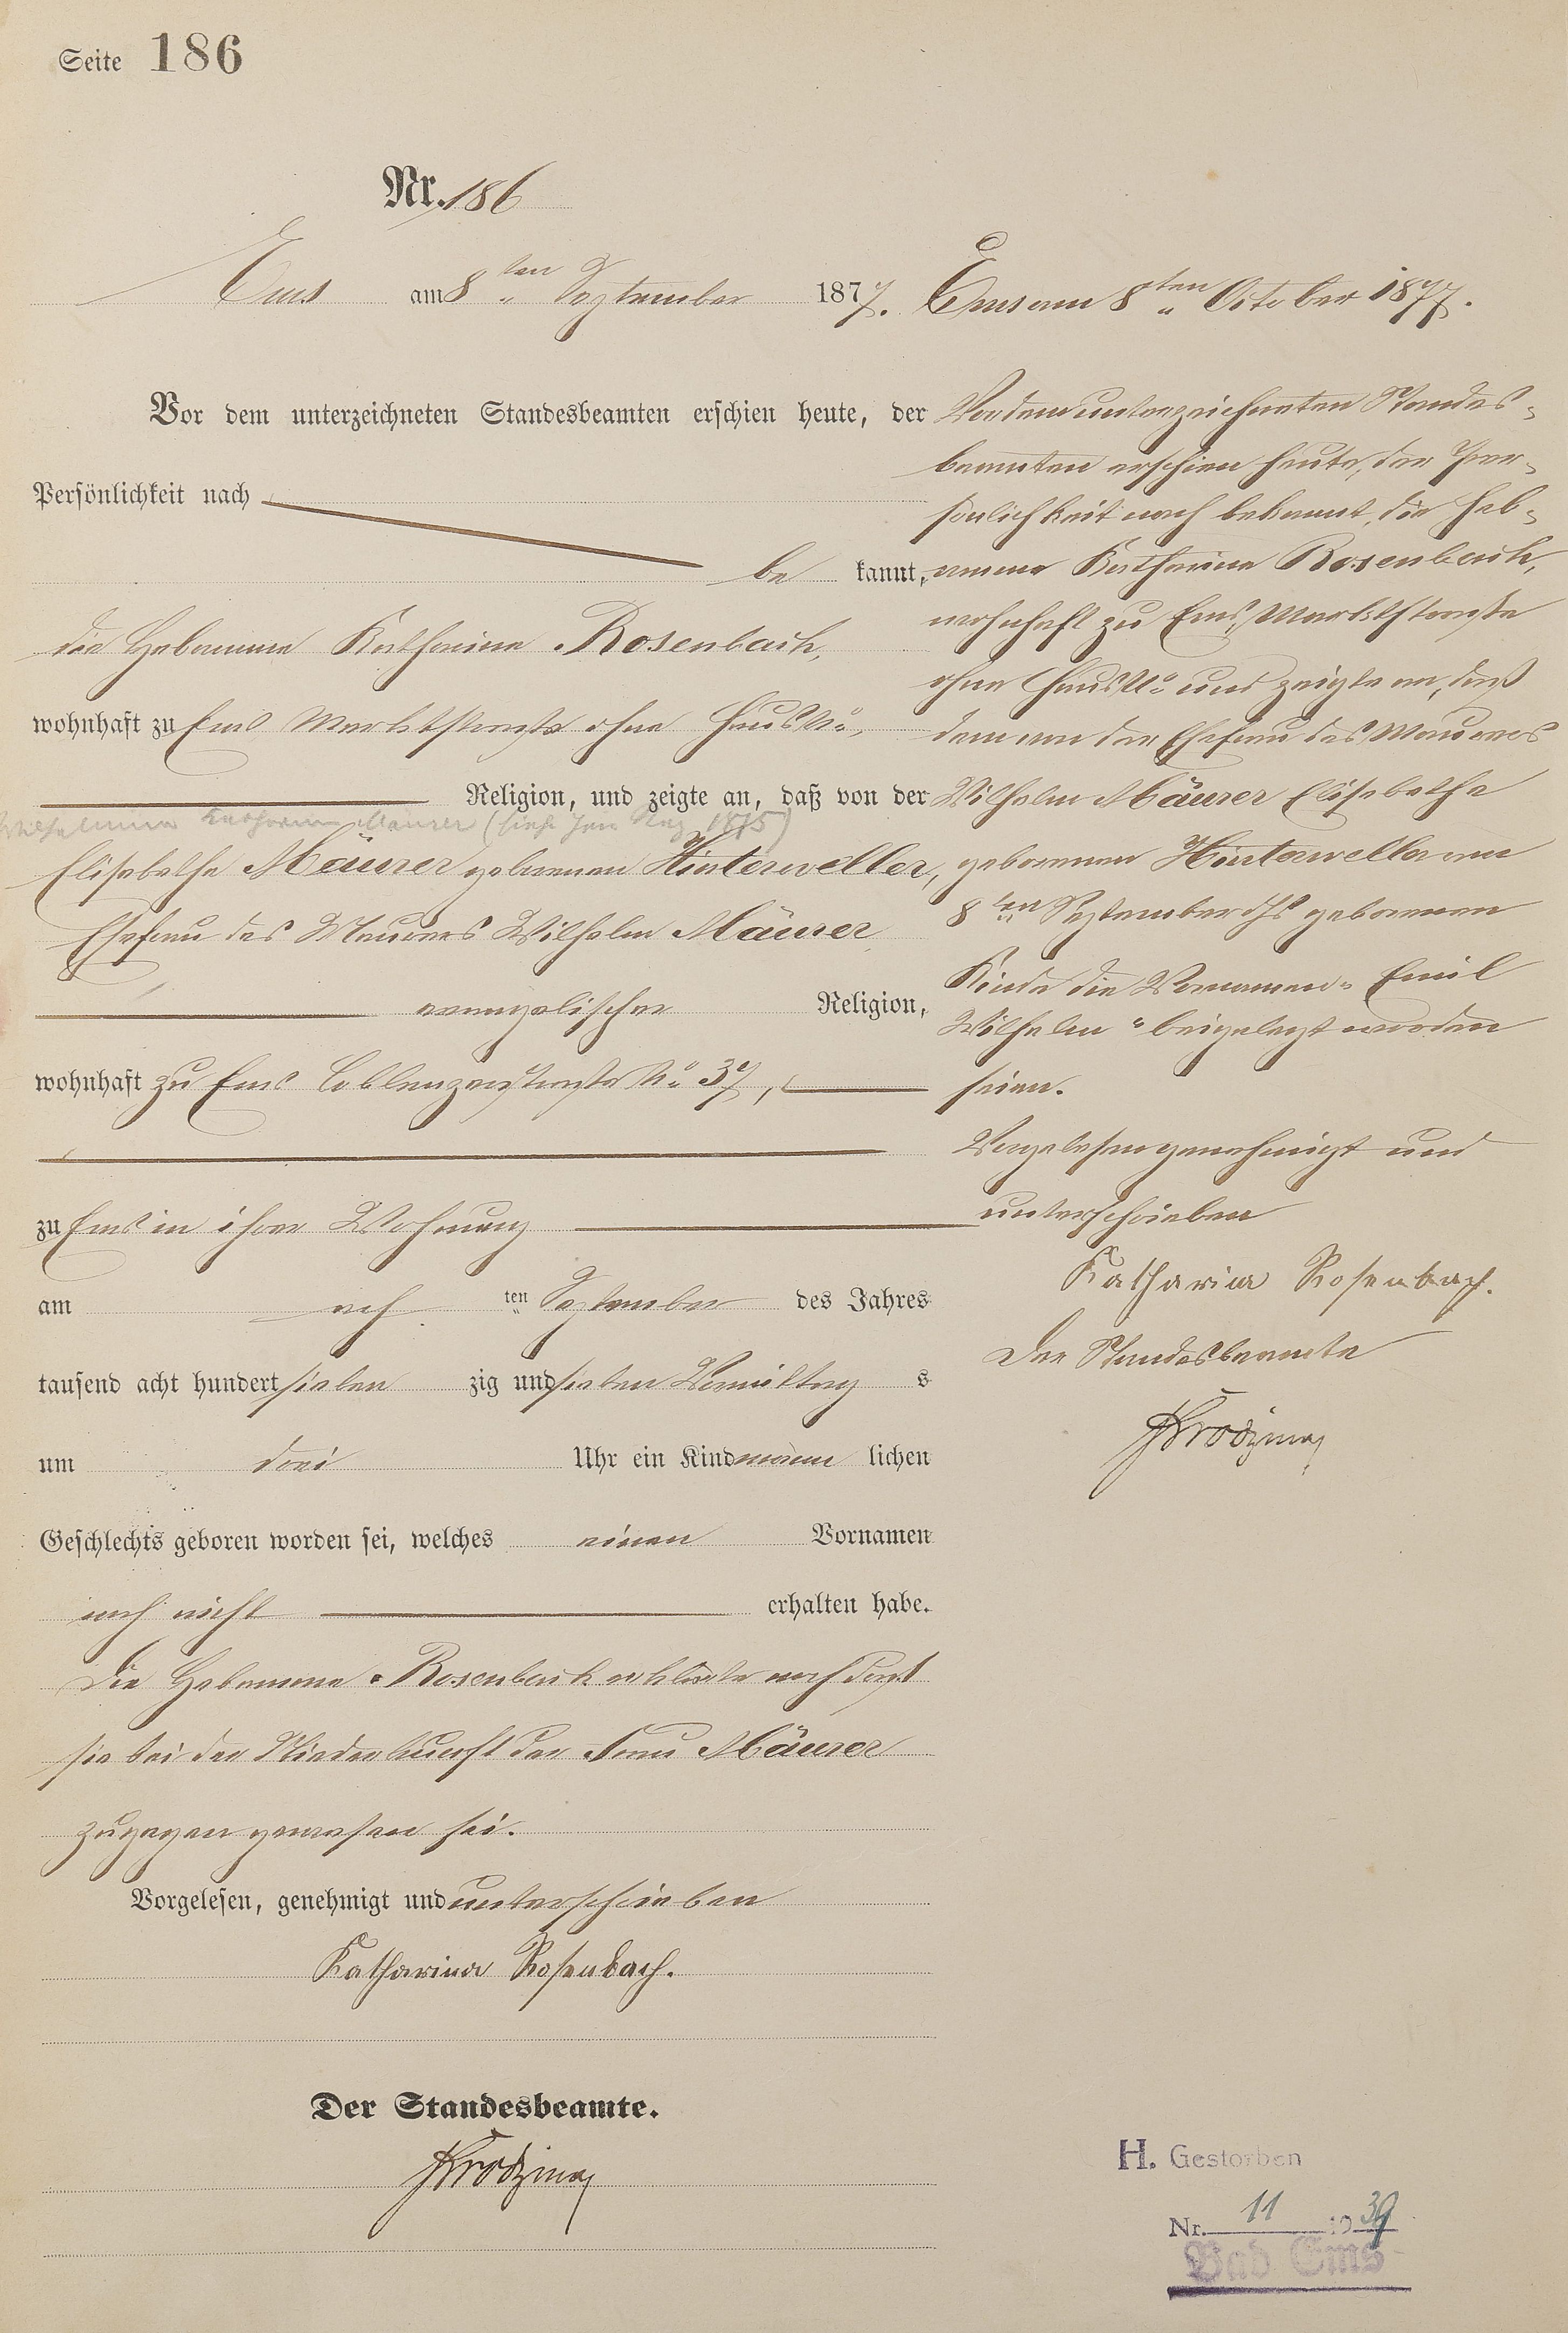 Seite 186
Nr. 186
Ems am 8ten September 1877.
Vor dem unterzeichneten Standesbeamten erschien heute, der
Persönlichkeit nach
be kannt,
die Hebamme Katharina Rosenbach,
wohnhaft zu Ems Marktstraße ohne Haus No,
Religion, und zeigte an, daß von der
Wilhelmine Katharina Maurer (siehe Reg 1875)
Elisabetha Mäurer geborenen Hinterweller,
Ehefrau des Maurers Wilhelm Mäurer
evangelischer Religion,
wohnhaft zu Ems Coblenzerstraße No 37,
zu Ems in ihrer Wohnung
am ach ten September des Jahres
tausend acht hundert sieben zig und sieben Vormittag s
um drei Uhr ein Kind männ lichen
Geschlechts geboren worden sei, welches einen Vornamen
noch nicht erhalten habe.
Die Hebamme Rosenbach erklärte noch daß
sie bei der Niederkunft der Frau Mäurer
zugegen gewesen sei.
Vorgelesen, genehmigt und unterschrieben
Katharina Rosenbach.
Der Standesbeamte.
Ems am 8ten October 1877.
Vor dem unterzeichneten Standes-
beamten erschien heute, der Per-
sönlichkeit nach bekannt, die Heb-
amme Katharina Rosenbach,
wohnhaft zu Ems, Marktstraße
ohne Haus No und zeigte an, daß
dem von der Ehefrau des Maurers
Wilhelm Mäurer Elisabetha
geborenen Hinterweller am
8ten September d Js geborenen
Kinde die Vornamen "Emil
Wilhelm" beigelegt worden
seien.
Vorgelesen genehmigt und
unterschrieben
Katharina Rosenbach.
Der Standesbeamte
H. Gestorben
Nr. 11 1939
Bad Ems